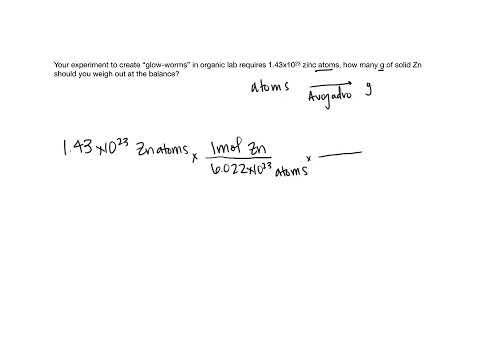 Your experiment to create “glow-worms” in organic lab requires 1.43x10²³ zinc atoms, how many g of solid Zn
should you weigh out at the balance?
atoms → g
Avogadro
1.43 x10²³ Zn atoms x 1mol Zn x
6.022x10²³ atoms